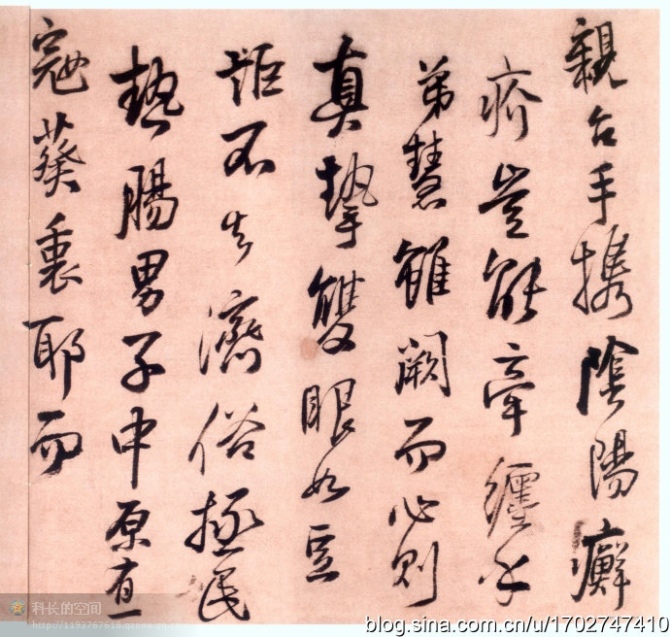 親台手攜陰陽癬
疥豈能牽纏乎
弟慧雖闕而心則
真摯雙眼如豆
詎不濟俗拯民
熱腸男子中原直
寇葵裏耶而
科长的空间
blog.sina.com.cn/u/1702747410